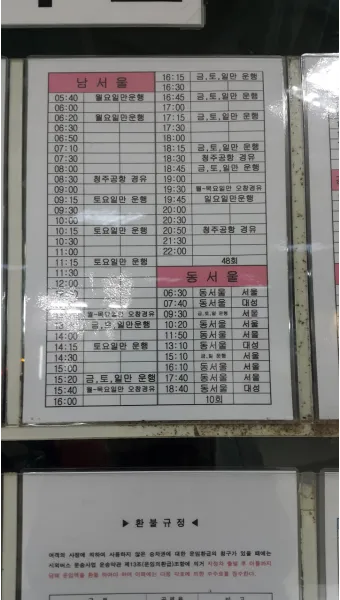 남 서 울
05:40 월요일만운행
06:00
06:20 월요일만운행
06:30
06:50
07:10
07:30
08:00
08:30 청주공항 경유
09:00
09:15 토요일만 운행
09:30
10:00
10:15 토요일만 운행
10:30
11:00
11:15 토요일만 운행
11:30
12:00
월-목요일만 오창경유
금,토,일만운행
14:00
14:15 토요일만 운행
14:30
15:00
15:20 금,토,일만 운행
15:40 월-목요일만 오창경유
16:00
16:15 금,토,일만 운행
16:30
16:45 금,토,일만 운행
17:00
17:15 금,토,일만 운행
17:30
18:00
18:15 금,토,일만 운행
18:30 청주공항 경유
18:45 금,토,일만 운행
19:00
19:30 월-목요일만 오창경유
19:45 일요일만운행
20:00
20:30
20:50 청주공항 경유
21:30
22:00
48회
동 서 울
06:30 동서울 서울
07:40 동서울 대성
09:30 금,토,일 운행 서울
10:20 동서울 서울
11:50 동서울 서울
13:10 동서울 대성
15:10 금,일 운행 서울
16:10 동서울 서울
17:40 동서울 서울
18:40 동서울 대성
10회
▶ 환불규정 ◀
여객의 사정에 의하여 사용하지 않은 승차권에 대한 운임환급의 청구가 있을 때에는
시외버스 운송사업 운송약관 제13조(운임의환급)조항에 의거